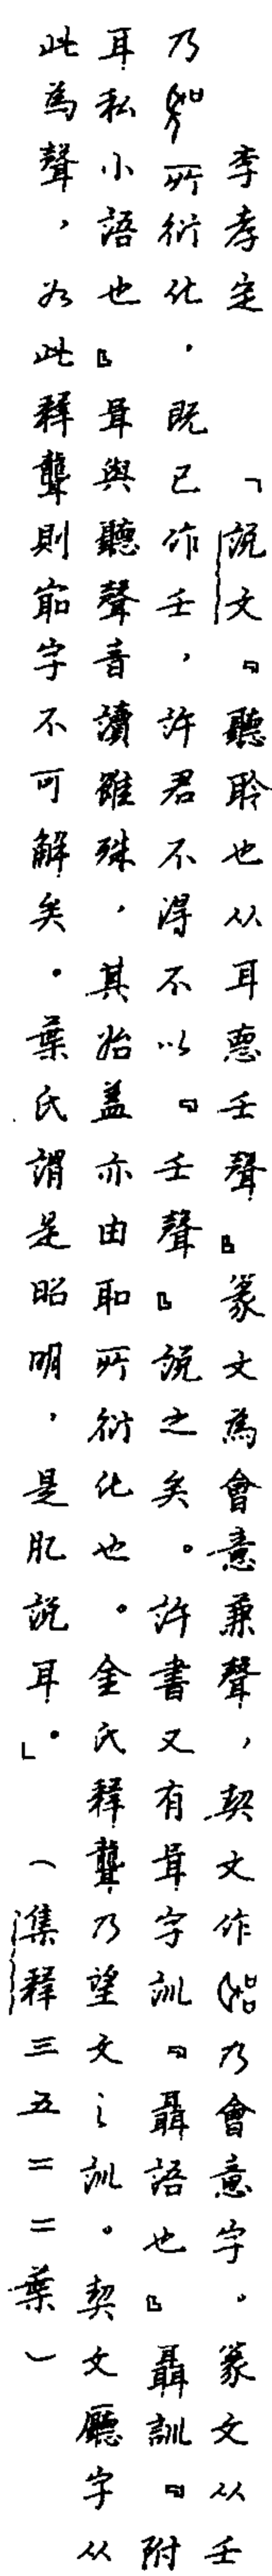 李孝定　「說文『聽聆也从耳悳壬聲』篆文為會意兼聲，契文作乃會意字。篆文从壬
乃所衍化．既已作壬，許君不得不以『壬聲』說之矣。許書又有咠字訓『聶語也』聶訓『附
耳私小語也』咠與聽聲音讀雖殊，其始蓋亦由耴所衍化也。金氏釋聾乃望文之訓。契文廳字从
此為聲，如此釋聾則字不可解矣。葉氏謂是昭明，是肊說耳。」（集釋三五二二葉）